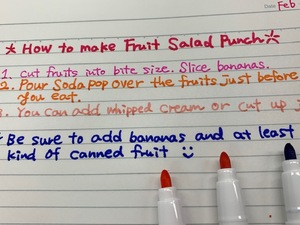 Date Feb
☆ How to make Fruit Salad Punch ☆
1. Cut fruits into bite size. Slice bananas.
2. Pour Soda pop over the fruits just before
you eat.
3. You can add whipped cream or cut up
Be sure to add bananas and at least
kind of canned fruit